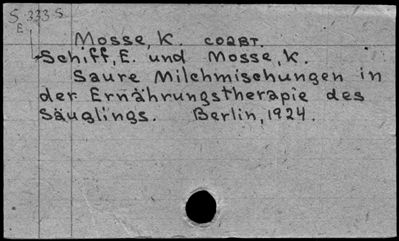 S 333 S
E
Mosse, K. соавт.
Schiff, E. und Mosse, K.
Saure Milchmischungen in
der Ernährungstherapie des
Säuglings. Berlin, 1924.